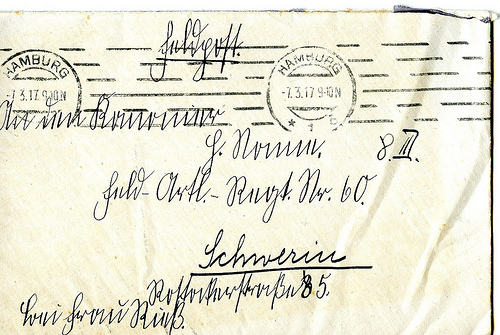 Feldpost.
HAMBURG
-7.3.17.9-10N
HAMBURG
-7.3.17.9-10N
* 1 5
An den Kanonier
H. Nonne. 8. II.
Feld-Artl.-Regt. Nr. 60.
Schwerin
Rostockerstraße 85.
bei Frau Rieß.